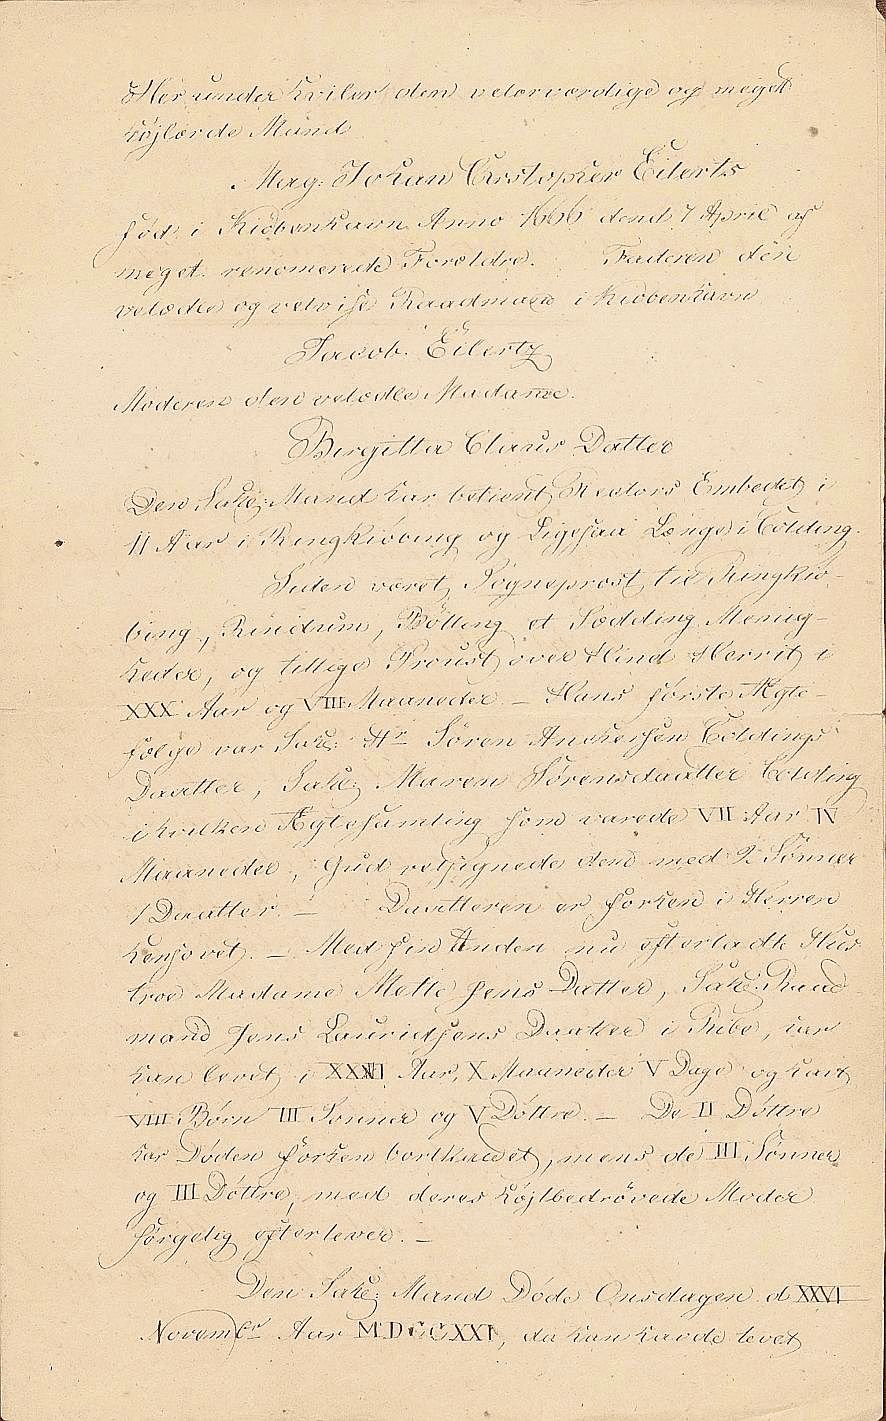 Her under hviler den velærværdige og meget
højlærde Mand
Mag: Johan Crstopher Eilerts
født i Kiöbenhavn Anno 1666 dend 7 April af
meget renomerede Forældre. Faderen den
velædle og velvise Raadmand i Kiöbenhavn
Jacob Eilertz
Moderen den velædle Madame.
Birgitta Claus Datter
Den Salig Mand har betient Rectors Embedet i
II Aar i Ringkiöbing og Ligesaa Længe i Colding.
Siden været Sogneprost til Ringkiö-
bing, Rindum, Bölling et Sædding Menig-
heder, og tilligeProust over Hind Herrit i
XXX Aar og VIII Maaneder – Hans første Ægte-
følge var Sal: Hr Søren Anchersen Coldings
Daatter, Sal: Maren Sørensdaatter Colding
i hvilken Ægtesamling som varede VII Aar IV
Maaneder, Gud velsignede dem med 2 Sønner
1 Daatter. – Daatteren er forhen i Herren
hensovet. – Med sin Anden nu efterladte Hus
troe Madame Mette Jens Datter, Sal: Raad
mand Jens Lauridsens Daatter i Ribe, har
han levet i Aar, X Maaneder V Dage og havt
VIII Børn III Sønner og V Döttre. – De II Döttre
har Døden forhen bortkaldet, mens de III Sønner
og III Döttre, med deres højtbedrövede Moder
sørgelig efterlever. –
Den Sal: Mand Døde Onsdagen d XXVI
Novembr Aar MDCCXXI, da han havde levet